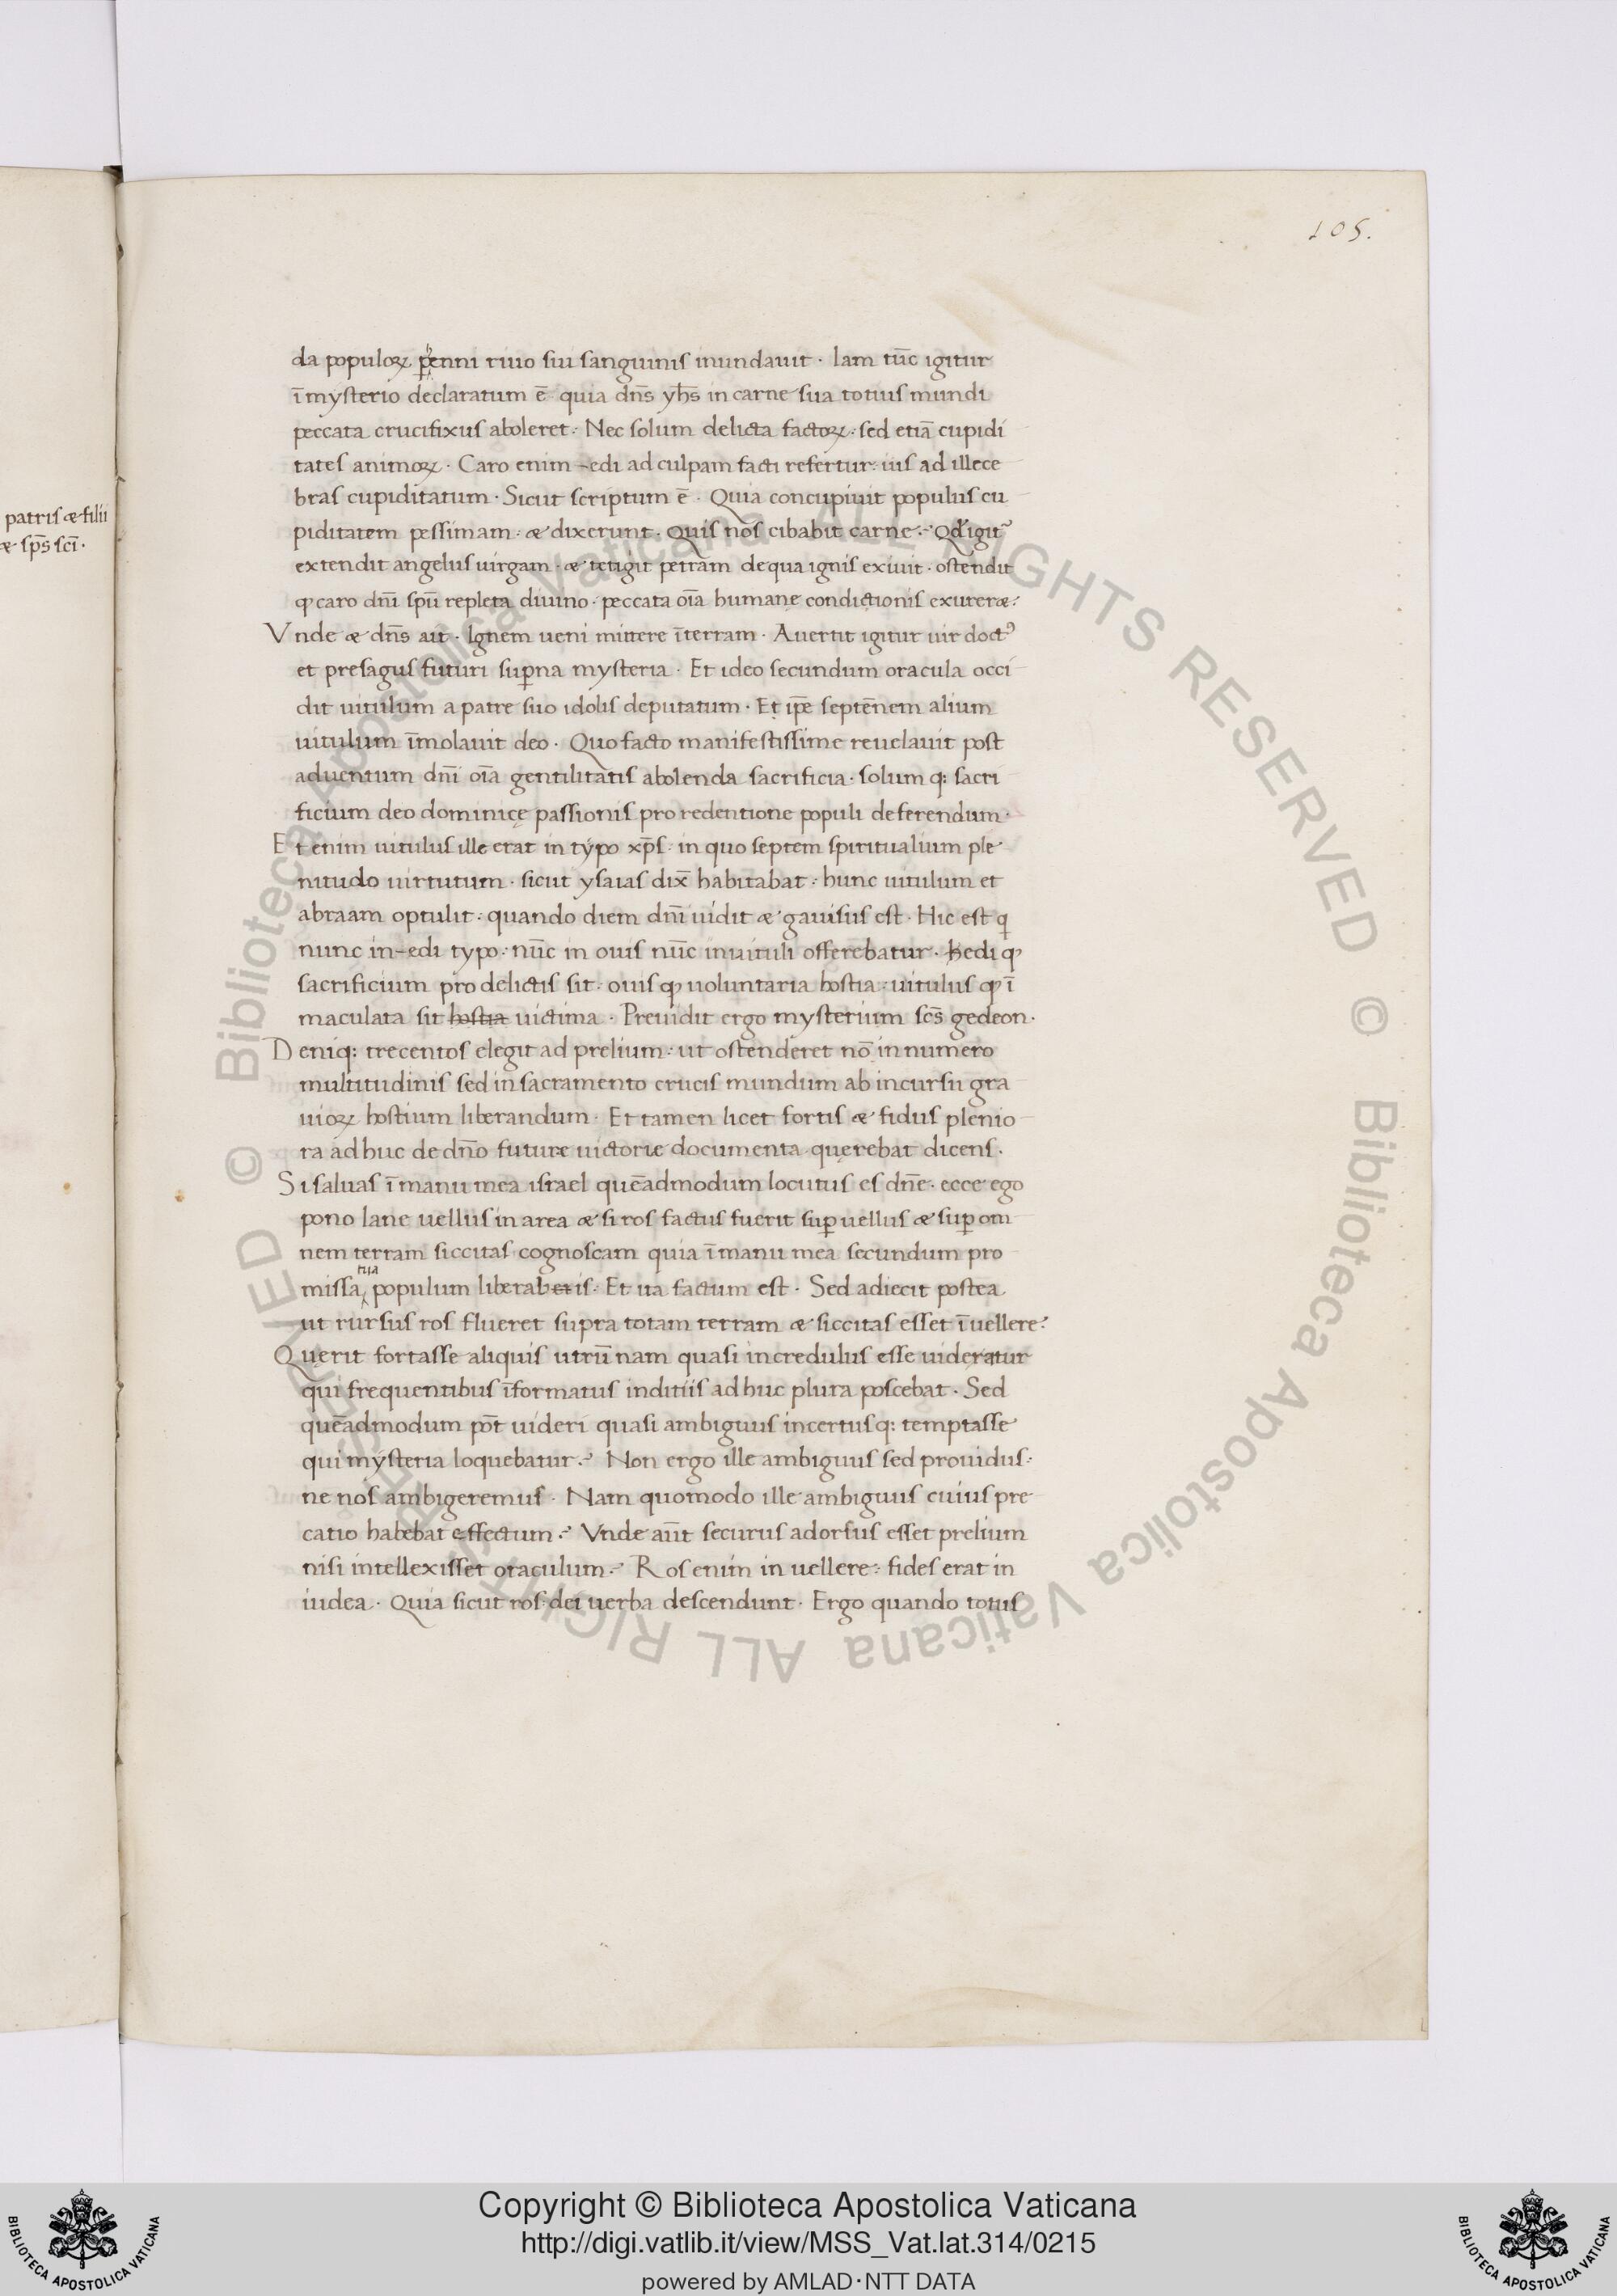 105.
patris & filii
& sp̄s sc̄i ·
da populoꝝ ꝑenni riuo sui sanguinis inundauit · Iam tūc igitur
ī mysterio declaratum ē quia dn̄s yħs in carne sua totius mundi
peccata crucifixus aboleret · Nec solum delicta factoꝝ · sed etiā cupidi
tates animoꝝ · Caro enim -edi ad culpam facti refertur · ius ad illece
bras cupiditatum · Sicut scriptum ē · Quia concupiuit populus cu
piditatem pessimam · & dixerunt · Quis nos cibabit carne · Qđ igit᷑
extendit angelus uirgam · & tetigit petram de qua ignis exiuit · ostendit
ꝙ caro dn̄i spū repleta diuino · peccata oīa humanę condictionis exurer&·
Vnde & dn̄s ait · Ignem ueni mittere ī terram · Auertit igitur uir doctꝰ
et presagus futuri suꝑna mysteria · Et ideo secundum oracula occi
dit uitulum a patre suo idolis deputatum · Et ip̄e septēnem alium
uitulum īmolauit deo · Quo facto manifestissime reuelauit post
aduentum dn̄i oīa gentilitatis abolenda sacrificia · solum q: sacri
ficium deo dominicę passionis pro redentione populi deferendum ·
Etenim uitulus ille erat in typo xp̄s · in quo septem spiritualium ple
nitudo uirtutum · sicut ysaias dix̄ habitabat · hunc uitulum et
abraam optulit · quando diem dn̄i uidit & gauisus est · Hic est q
nunc in -edi typo · nūc in ouis nūc in uituli offerebatur · Hedi ꝙ
sacrificium pro delictis sit · ouis ꝙ uoluntaria hostia · uitulus ꝙ ī
maculata sit hostia uictima · Preuidit ergo mysterium sc̄s gedeon ·
Deniq: trecentos elegit ad prelium · ut ostenderet nō in numero
multitudinis sed in sacramento crucis mundum ab incursu gra
uioꝝ hostium liberandum · Et tamen licet fortis & fidus plenio
ra adhuc de dn̄o future uictorie documenta quęrebat dicens ·
Si saluas ī manu mea israel quēadmodum locutus es dn̄e · ecce ego
pono lane uellus in area & si ros factus fuerit suꝑ uellus & suꝑ om
nem terram siccitas cognoscam quia ī manu mea secundum pro
missa tua populum liberaberis · Et ita factum est · Sed adiecit postea
ut rursus ros flueret supra totam terram & siccitas esset ī uellere ·
Quęrit fortasse aliquis utrū nam quasi incredulus esse uideratur
qui frequentibus īformatus inditiis adhuc plura poscebat · Sed
quēadmodum pōt uideri quasi ambiguus incertusq: temptasse
qui mysteria loquebatur · Non ergo ille ambiguus sed prouidus ·
ne nos ambigeremus · Nam quomodo ille ambiguus cuius pre
catio habebat effectum · Vnde aūt securus adorsus esset prelium
nisi intellexisset oraculum · Ros enim in uellere · fides erat in
iudea · Quia sicut ros dei uerba descendunt · Ergo quando totus
Copyright © Biblioteca Apostolica Vaticana
http://digi.vatlib.it/view/MSS_Vat.lat.314/0215
powered by AMLAD·NTT DATA